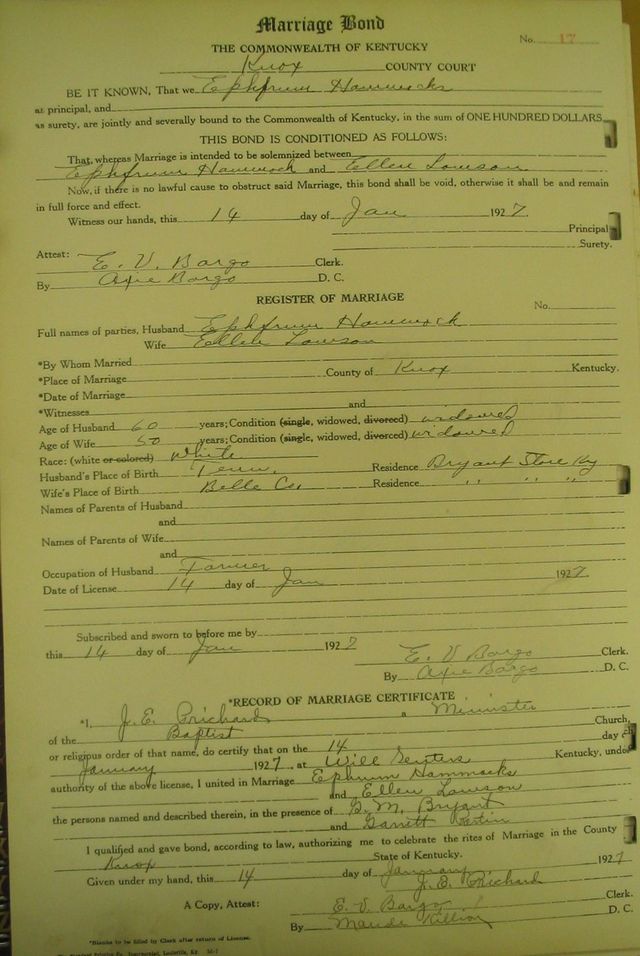 Marriage Bond
No. 17
THE COMMONWEALTH OF KENTUCKY
Knox COUNTY COURT
BE IT KNOWN, That we Ephfrum Hammocks
as principal, and
as surety, are jointly and severally bound to the Commonwealth of Kentucky, in the sum of ONE HUNDRED DOLLARS
THIS BOND IS CONDITIONED AS FOLLOWS:
That, whereas Marriage is intended to be solemnized between
Ephfrum Hammock and Ellen Lawson
Now, if there is no lawful cause to obstruct said Marriage, this bond shall be void, otherwise it shall be and remain
in full force and effect.
Witness our hands, this 14 day of Jan 1927.
Principal
Surety.
Attest: E. V. Bargo Clerk.
By Oxie Bargo D. C.
REGISTER OF MARRIAGE
No.
Full names of parties, Husband Ephfrum Hammock
Wife Ellen Lawson
*By Whom Married
*Place of Marriage County of Knox Kentucky.
*Date of Marriage
*Witnesses and
Age of Husband 60 years; Condition (single, widowed, divorced) widowed
Age of Wife 50 years; Condition (single, widowed, divorced) widowed
Race: (white or colored) White
Husband's Place of Birth Tenn. Residence Bryant Store Ky
Wife's Place of Birth Belle Co. Residence " " "
Names of Parents of Husband
and
Names of Parents of Wife
and
Occupation of Husband Farmer
Date of License 14 day of Jan 1927.
Subscribed and sworn to before me by
this 14 day of Jan 1927
E. V Bargo Clerk.
By Oxie Bargo D. C.
*RECORD OF MARRIAGE CERTIFICATE
*I, J. E. Prichard a Minister
of the Baptist Church,
or religious order of that name, do certify that on the 14 day of
January 1927, at Will Senters Kentucky, under
authority of the above license, I united in Marriage Ephrum Hammocks
and Ellen Lawson
the persons named and described therein, in the presence of G. M. Bryant
and Garrett
I qualified and gave bond, according to law, authorizing me to celebrate the rites of Marriage in the County
Knox State of Kentucky.
Given under my hand, this 14 day of January 1927
J. E. Prichard
A Copy, Attest: E. V. Bargo Clerk.
By Maude Killion D. C.
*Blanks to be filled by Clerk after return of License.